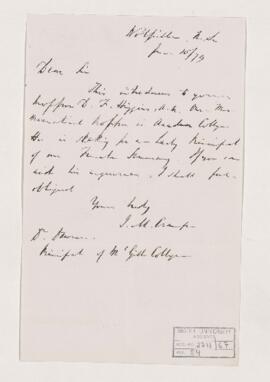 Wolfville, N.S.
Jan 15/79
Dear Sir
This introduces to you
Professor D. F. Higgins, M.A. Our Ma-
thematical Professor in Acadia College
He is looking for a Lady Principal
of our Female Seminary. If you can
aid his enquiries, I shall feel
obliged
Yours truly
J. M. Cramp
Dr Dawson
Principal of McGill College
McGILL UNIVERSITY
ARCHIVES
ACC. NO. 2211 67